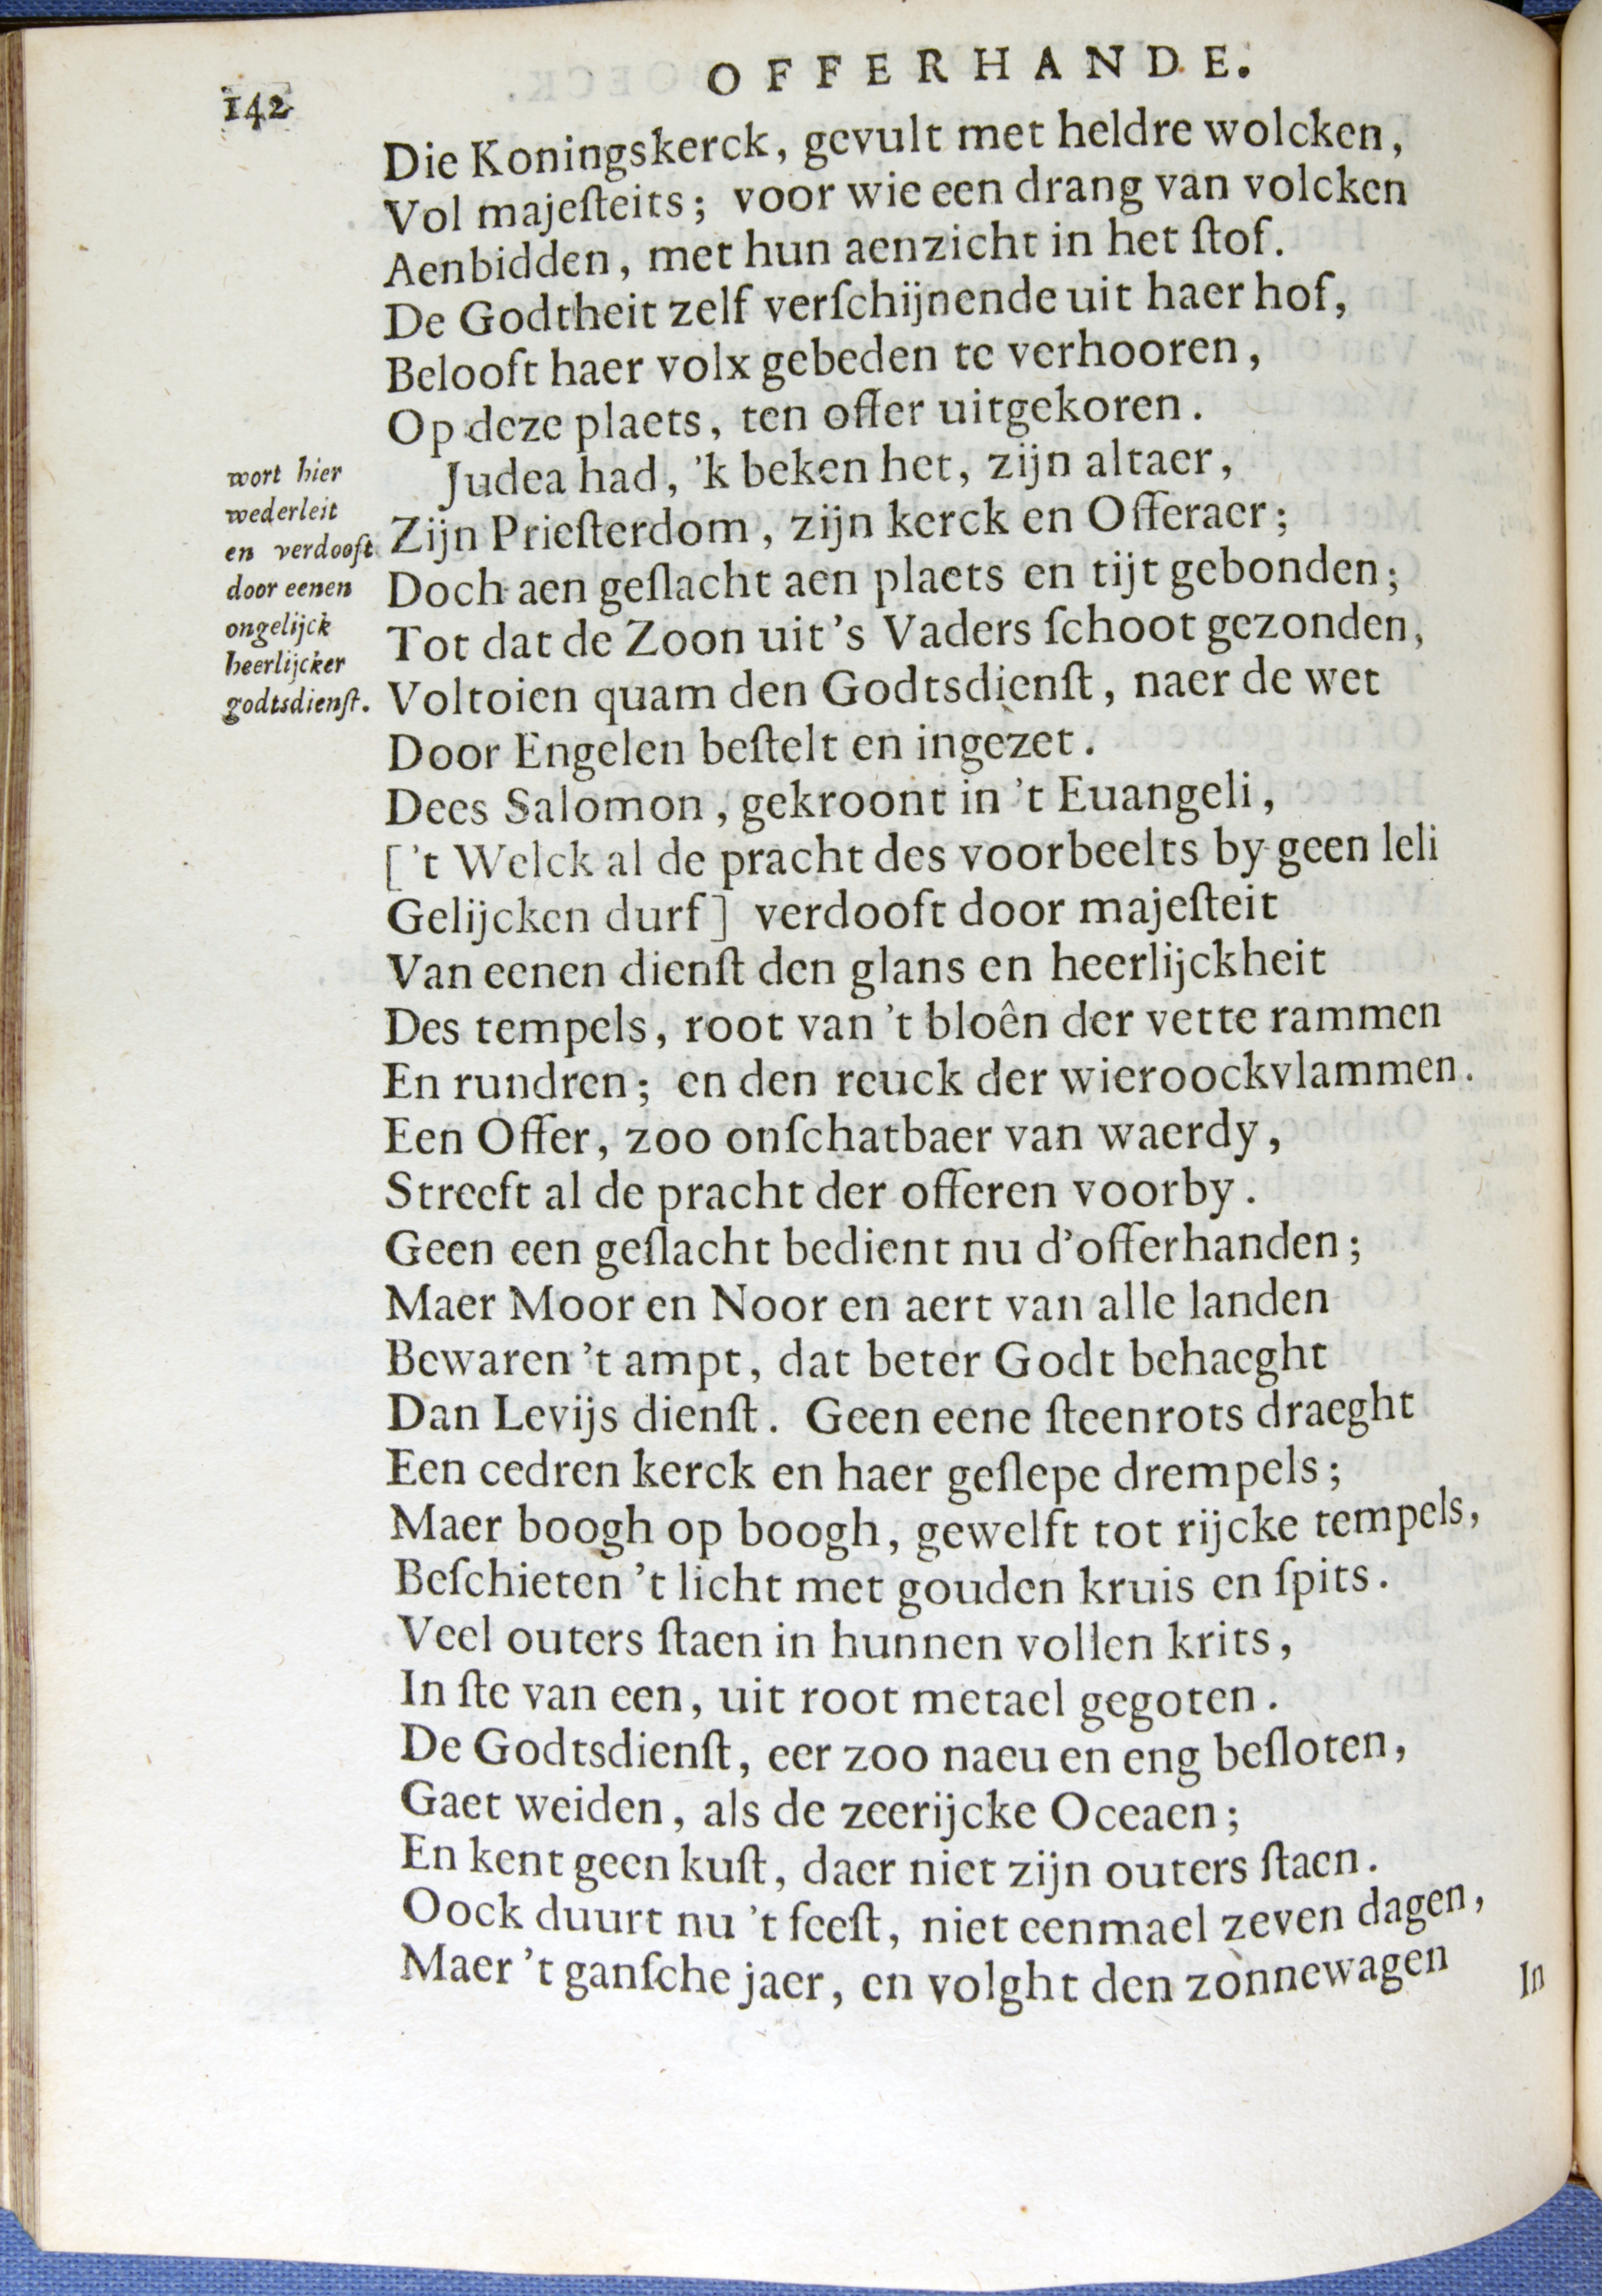 142
OFFERHANDE.
Die Koningskerck, gevult met heldre wolcken,
Vol majeſteits; voor wie een drang van volcken
Aenbidden, met hun aenzicht in het ſtof.
De Godtheit zelf verſchijnende uit haer hof,
Belooft haer volx gebeden te verhooren,
Op deze plaets, ten offer uitgekoren.
Judea had, 'k beken het, zijn altaer,
Zijn Prieſterdom, zijn kerck en Offeraer;
Doch aen geſlacht aen plaets en tijt gebonden;
Tot dat de Zoon uit 's Vaders ſchoot gezonden,
Voltoien quam den Godtsdienſt, naer de wet
Door Engelen beſtelt en ingezet.
wort hier
wederleit
en verdooft
door eenen
ongelijck
heerlijcker
godtsdienſt.
Dees Salomon, gekroont in 't Euangeli,
['t Welck al de pracht des voorbeelts by geen leli
Gelijcken durf] verdooft door majeſteit
Van eenen dienſt den glans en heerlijckheit
Des tempels, root van 't bloên der vette rammen
En rundren; en den reuck der wieroockvlammen.
Een Offer, zoo onſchatbaer van waerdy,
Streeft al de pracht der offeren voorby.
Geen een geſlacht bedient nu d'offerhanden;
Maer Moor en Noor en aert van alle landen
Bewaren 't ampt, dat beter Godt behaeght
Dan Levijs dienſt. Geen eene ſteenrots draeght
Een cedren kerck en haer geſlepe drempels;
Maer boogh op boogh, gewelft tot rijcke tempels,
Beſchieten 't licht met gouden kruis en ſpits.
Veel outers ſtaen in hunnen vollen krits,
In ſte van een, uit root metael gegoten.
De Godtsdienſt, eer zoo naeu en eng beſloten,
Gaet weiden, als de zeerijcke Oceaen;
En kent geen kuſt, daer niet zijn outers ſtaen.
Oock duurt nu 't feeſt, niet eenmael zeven dagen,
Maer 't ganſche jaer, en volght den zonnewagen
In